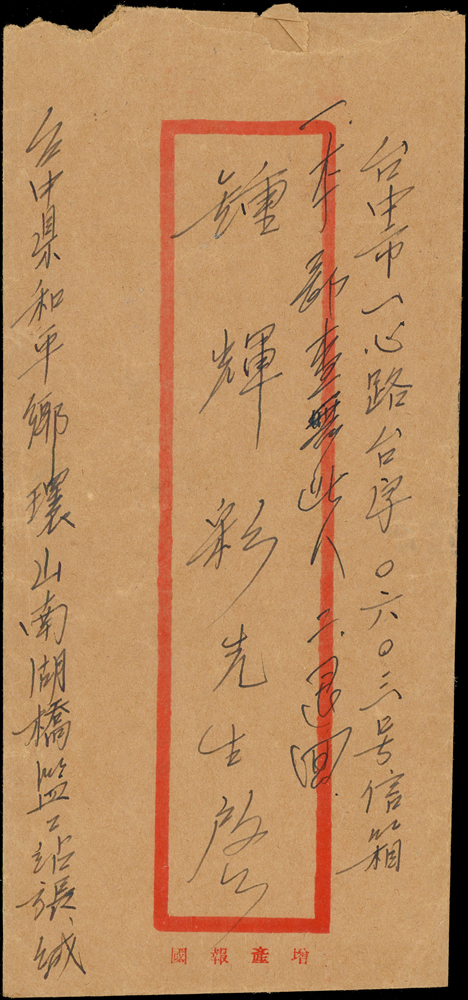 台中市一心路台字〇六〇三号信箱
一.本部查無此人 二.退回.
鍾輝彩先生啟
台中県和平鄉環山南湖橋監工站張、缄
增產報國